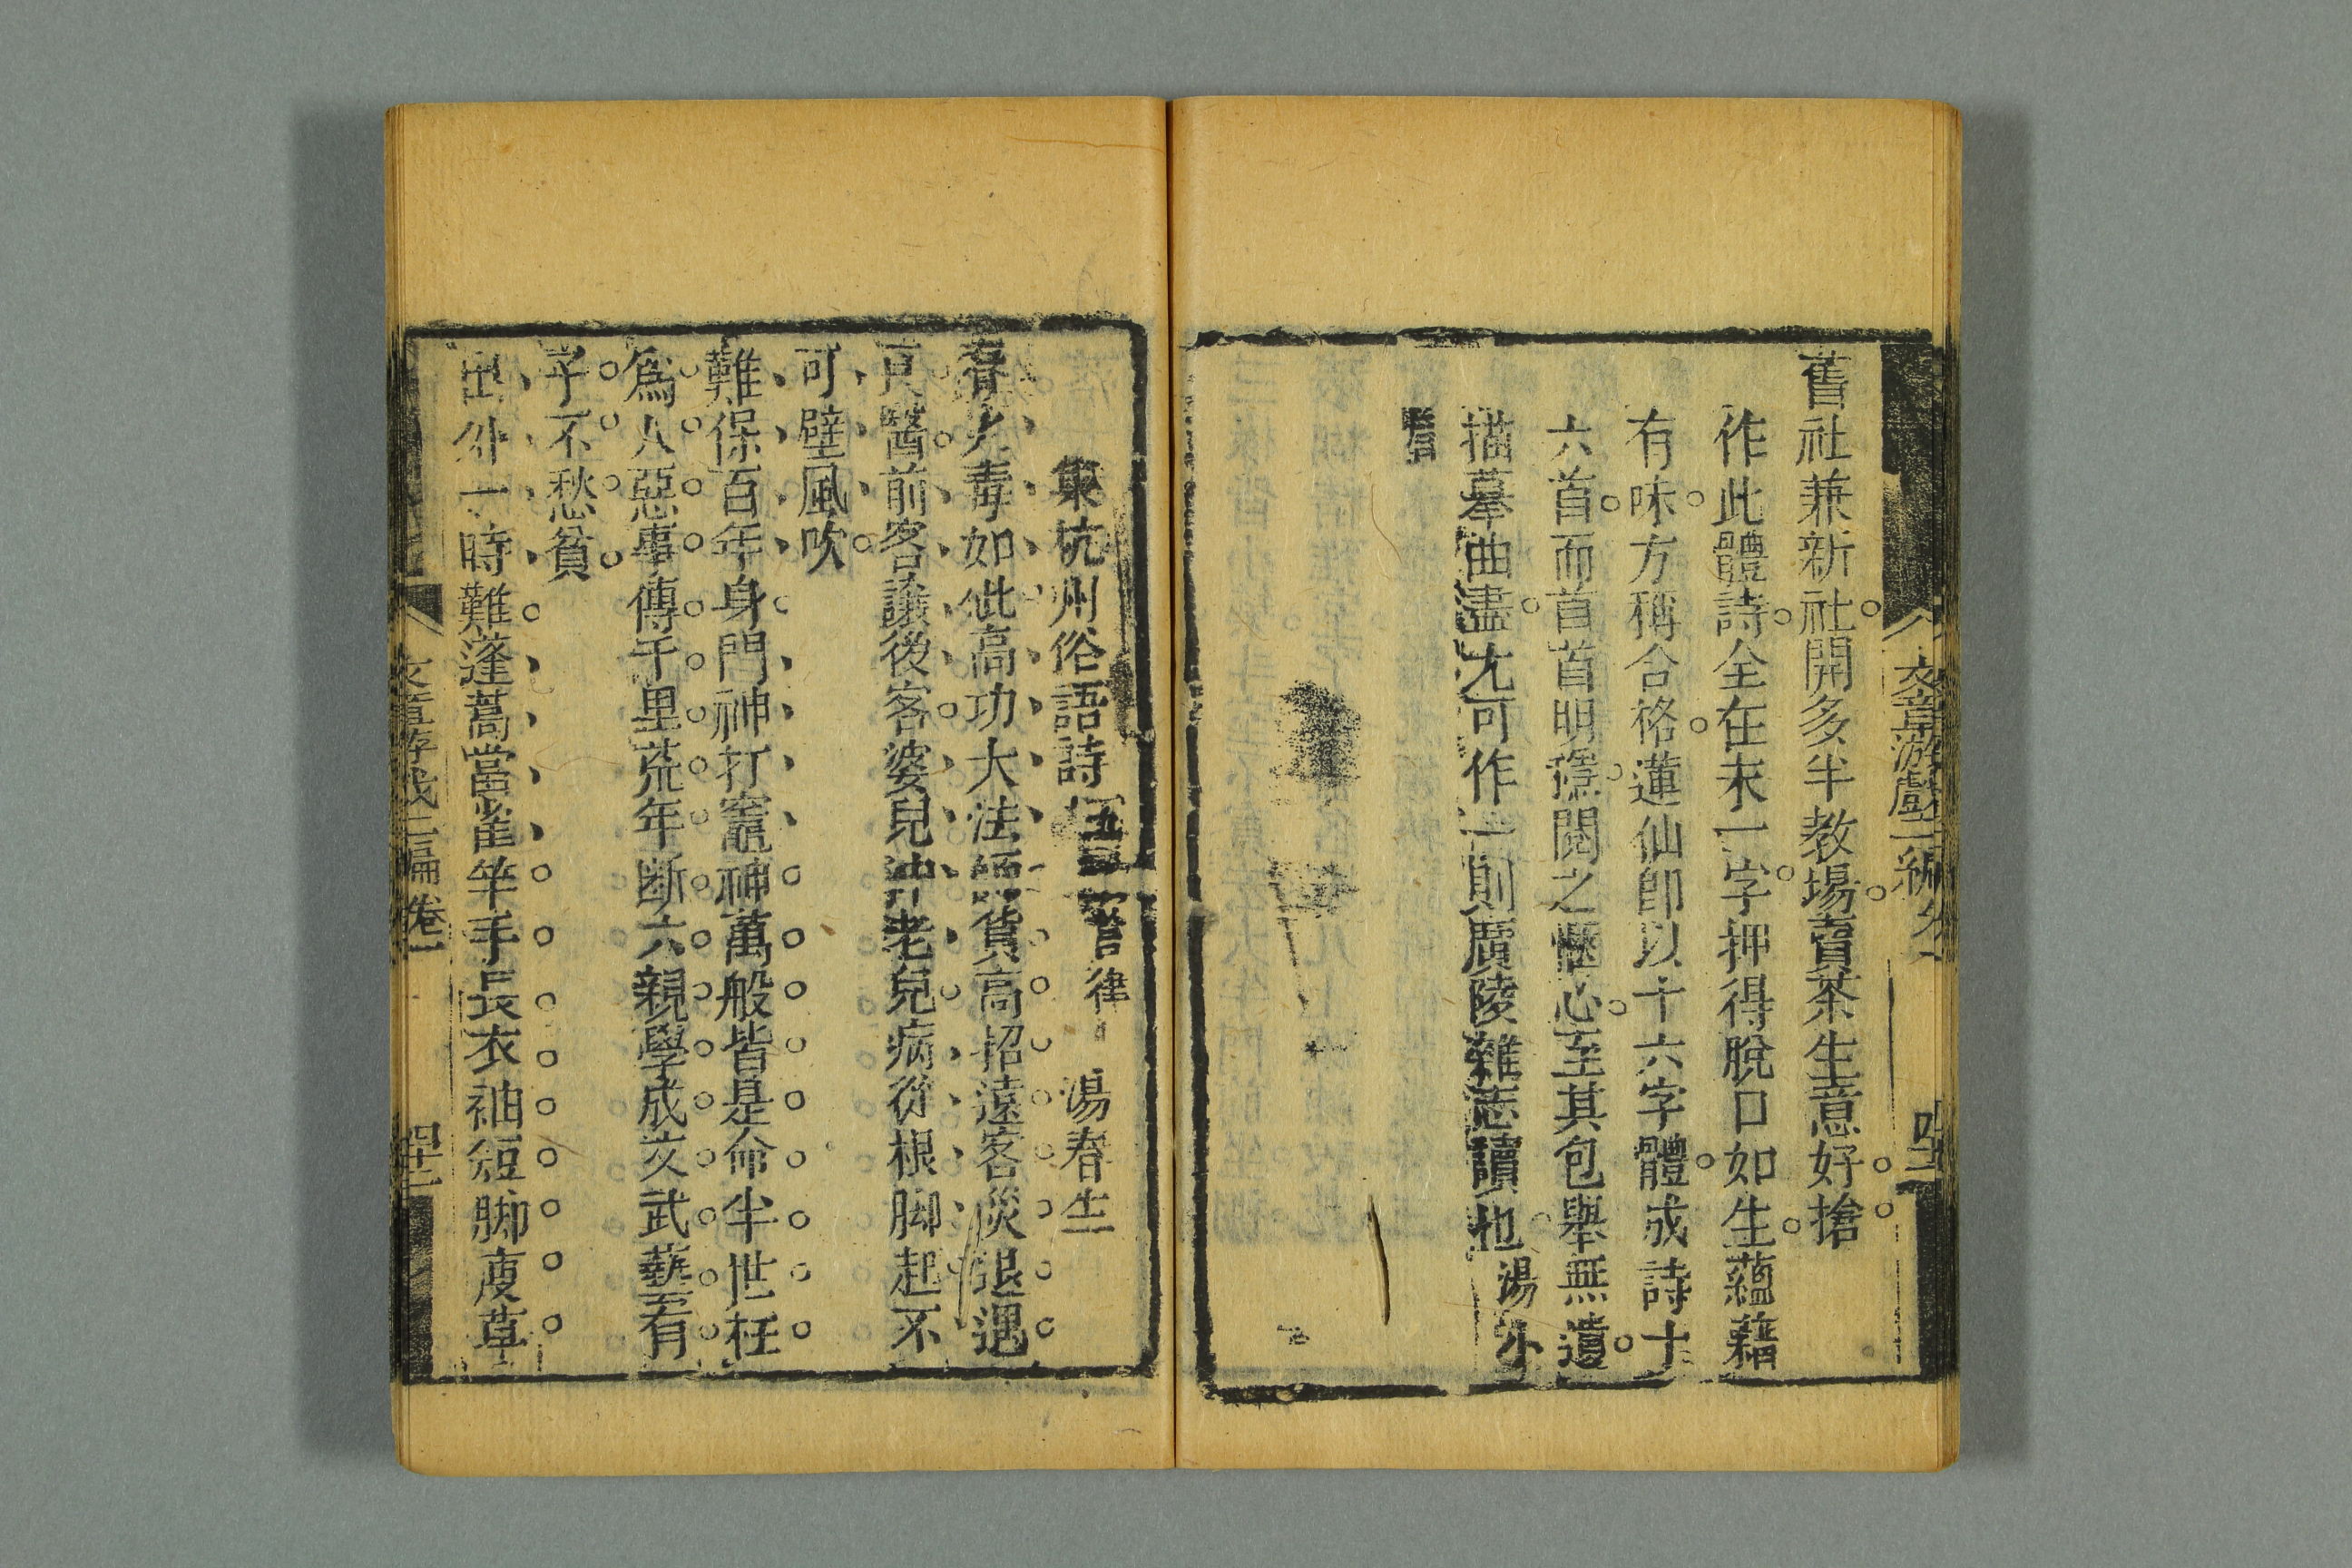 文章游戲二編卷一
舊社兼新社開多半教場賣茶生意好搶
作此體詩全在末一字押得脫口如生蘊藉
有味方稱合格蓮仙卽以十六字體成詩十
六首而首首明穩閱之愜心至其包舉無遺
描摹曲盡尤可作一則廣陵雜志讀也湯小
集杭州俗語詩五言律 湯春生
毒如此高功大法 貨高招遠客災退遇
良醫前客讓後客婆兒 老兒病從根脚起不
可壁風吹
難保百年身門神打竈神萬般皆是命半世枉
爲人惡事傳千里荒年斷六親學成文武藝有
子不愁貧
出外一時難蓬蒿當雀竿手長衣袖短脚廋草
文章游戲二編卷一